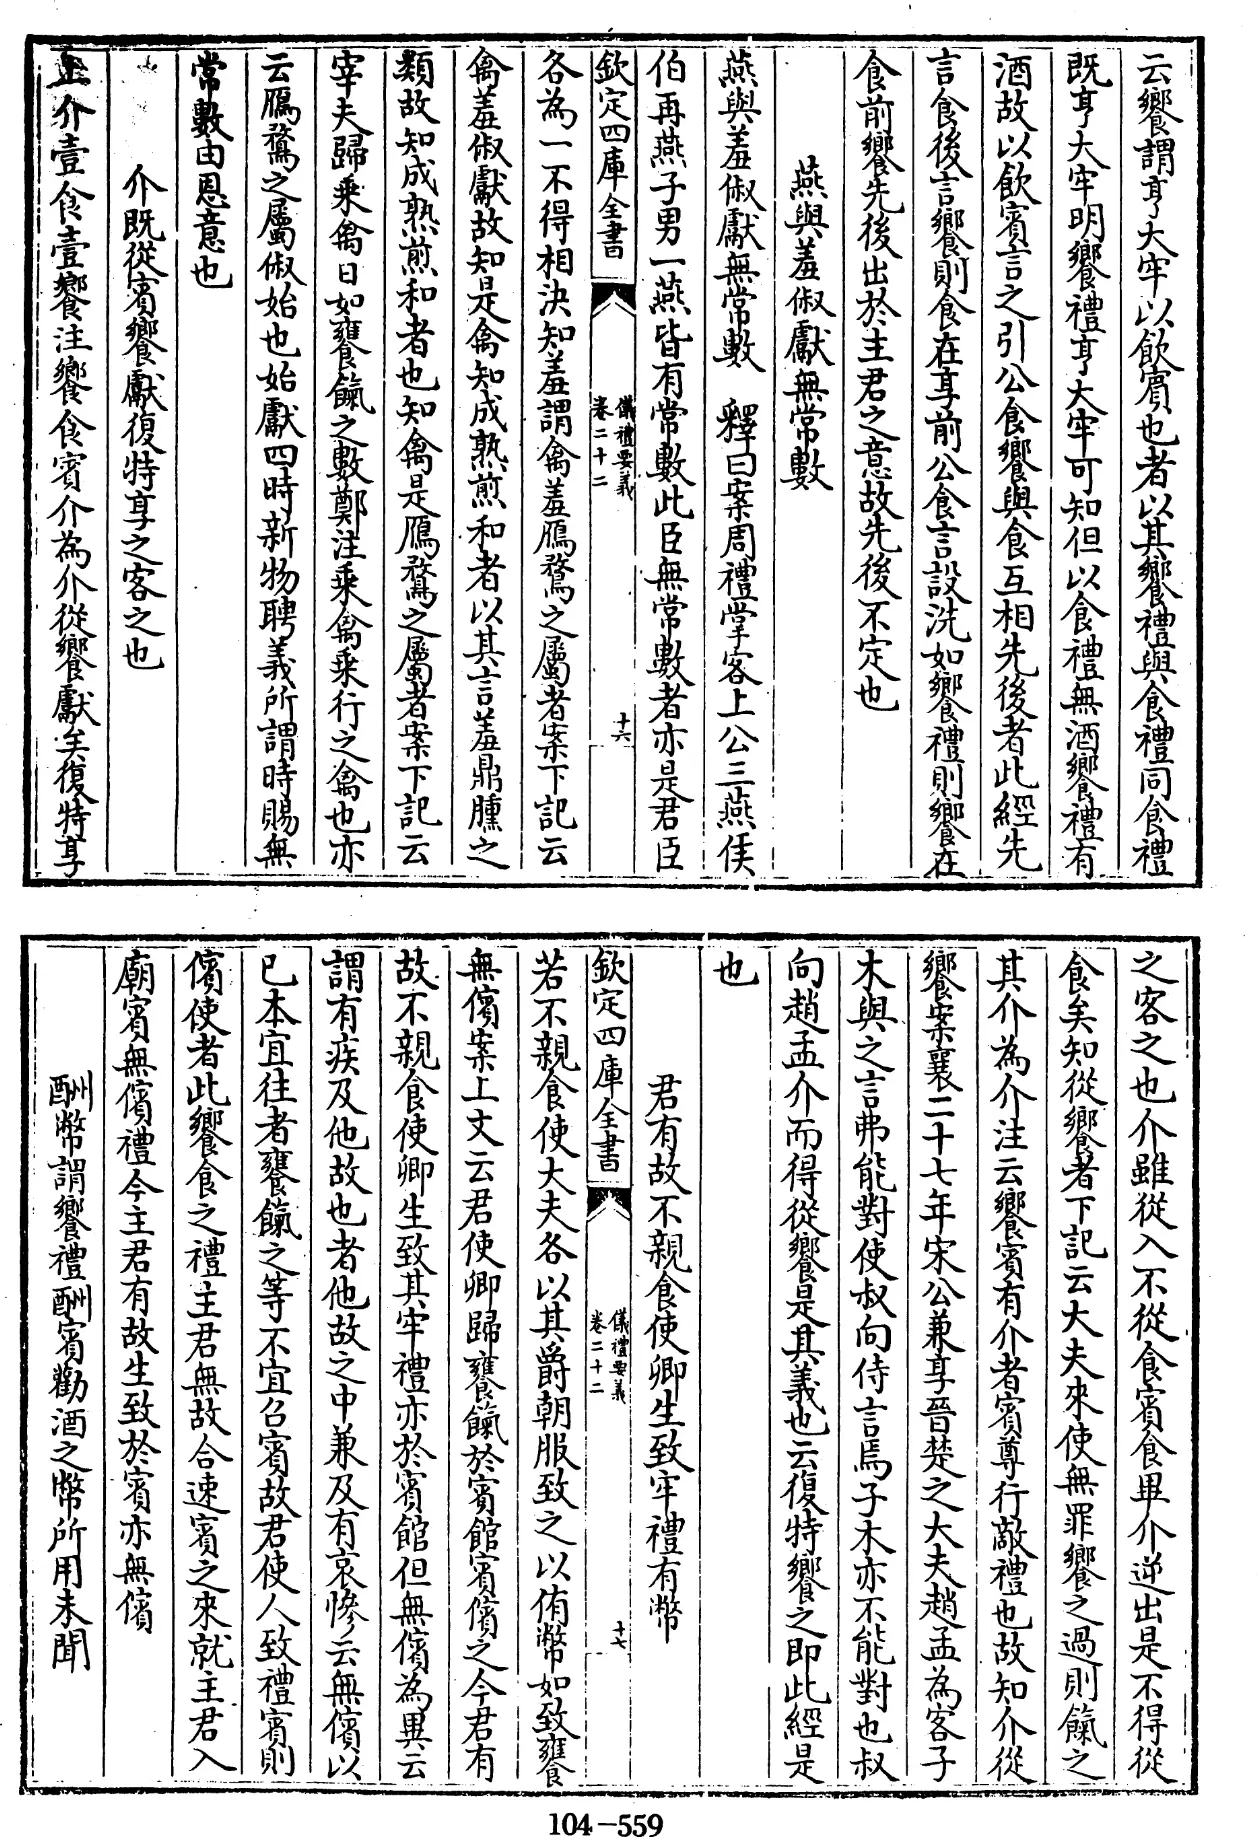 云饗謂亨大牢以飲賔也者以其饗禮與食禮同食禮
既亨大牢明饗禮亨大牢可知但以食禮無酒饗禮有
酒故以飲賔言之引公食饗與食互相先後者此經先
言食後言饗則食在享前公食言設洗如饗禮則饗在
食前饗先後出於主君之意故先後不定也
燕與羞俶獻無常數
燕與羞俶獻無常數　釋曰案周禮掌客上公三燕侯
伯再燕子男一燕皆有常數此臣無常數者亦是君臣
欽定四庫全書
儀禮要義
卷二十二
十六
各為一不得相決知羞謂禽羞鴈鶩之屬者案下記云
禽羞俶獻故知是禽知成熟煎和者以其言羞鼎臐之
類故知成熟煎和者也知禽是鴈鶩之屬者案下記云
宰夫歸乘禽日如饔餼之數鄭注乘禽乘行之禽也亦
云鴈鶩之屬俶始也始獻四時新物聘義所謂時賜無
常數由恩意也
介既從賔饗獻復特享之客之也
上介壹食壹饗注饗食賔介為介從饗獻矣復特享
之客之也介雖從入不從食賔食畢介逆出是不得從
食矣知從饗者下記云大夫來使無罪饗之過則餼之
其介為介注云饗賔有介者賔尊行敵禮也故知介從
饗案襄二十七年宋公兼享晉楚之大夫趙孟為客子
木與之言弗能對使叔向侍言焉子木亦不能對也叔
向趙孟介而得從饗是其義也云復特饗之即此經是
也
君有故不親食使卿生致牢禮有幣
欽定四庫全書
儀禮要義
卷二十二
十七
若不親食使大夫各以其爵朝服致之以侑幣如致饔
無儐案上文云君使卿歸饔餼於賔館賔儐之今君有
故不親食使卿生致其牢禮亦於賔館但無儐為異云
謂有疾及他故也者他故之中兼及有哀慘云無儐以
己本宜往者饔餼之等不宜召賔故君使人致禮賔則
儐使者此饗食之禮主君無故合速賔之來就主君入
廟賔無儐禮今主君有故生致於賔亦無儐
酬幣謂饗禮酬賔勸酒之幣所用未聞
104-559